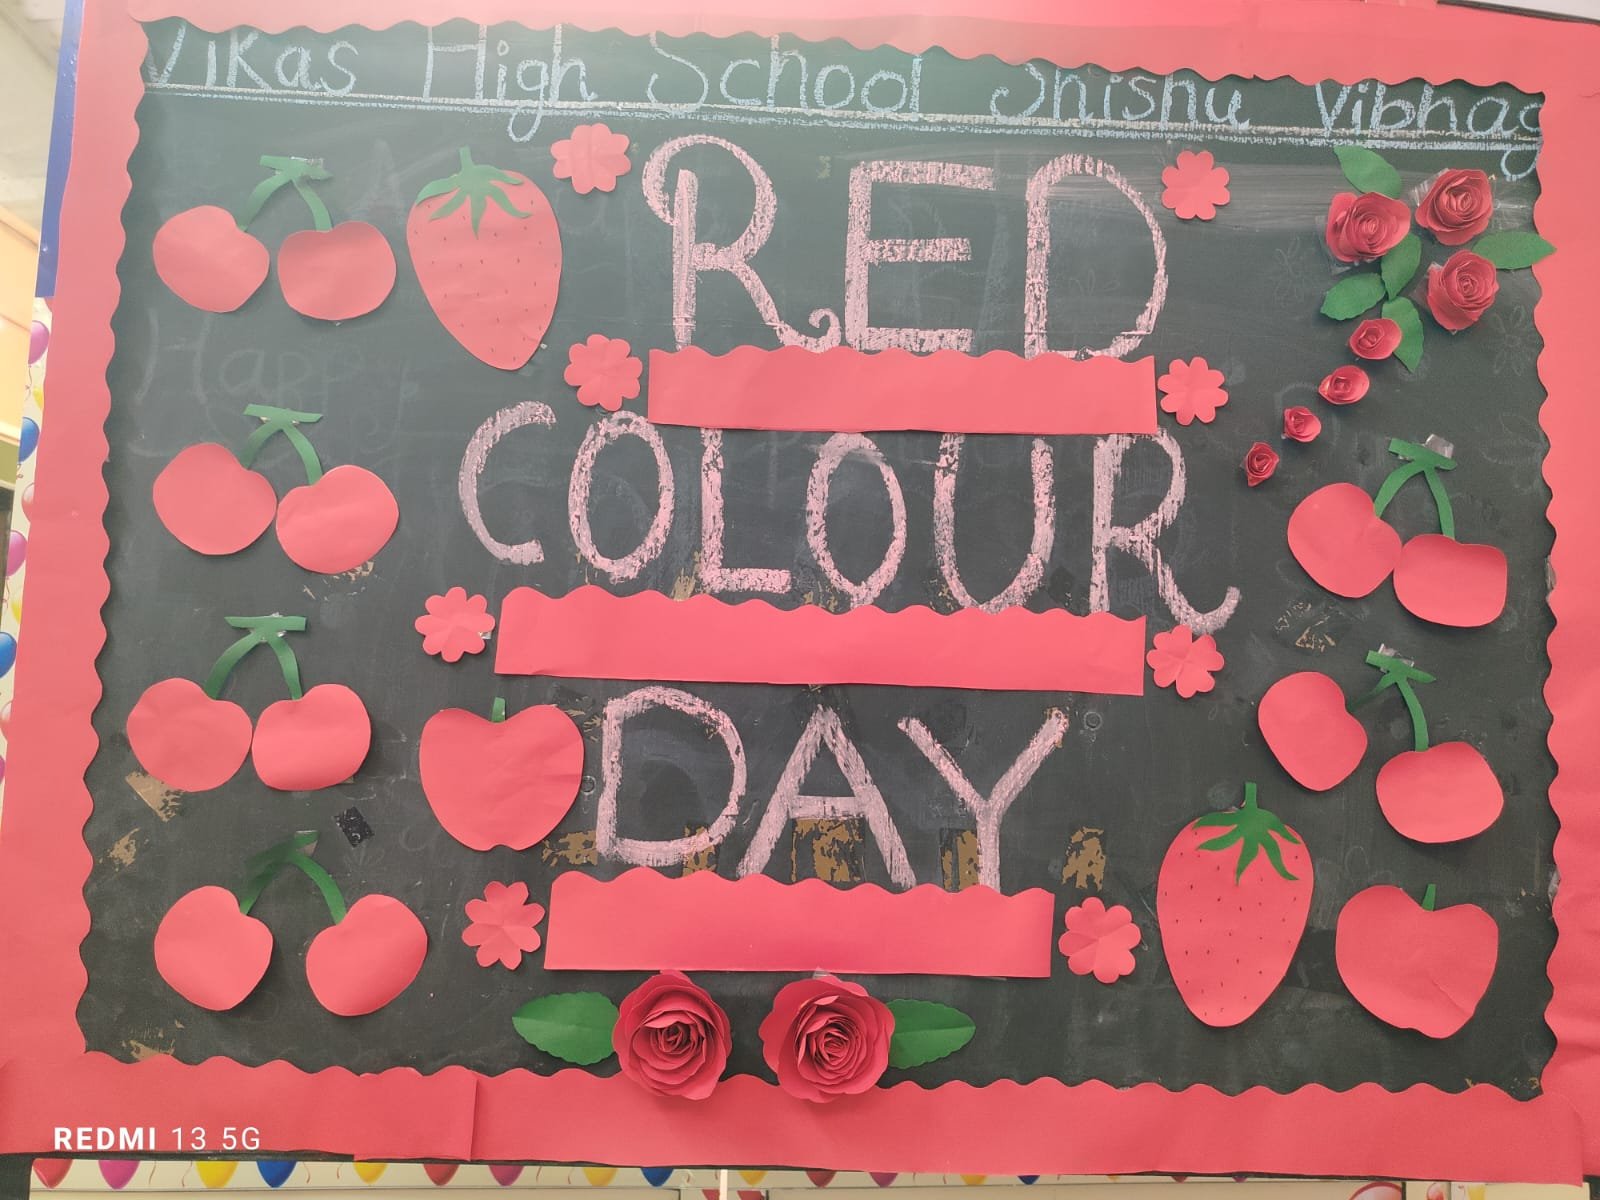 Vikas High School Shishu Vibhag
RED
COLOUR
DAY
REDMI 13 5G